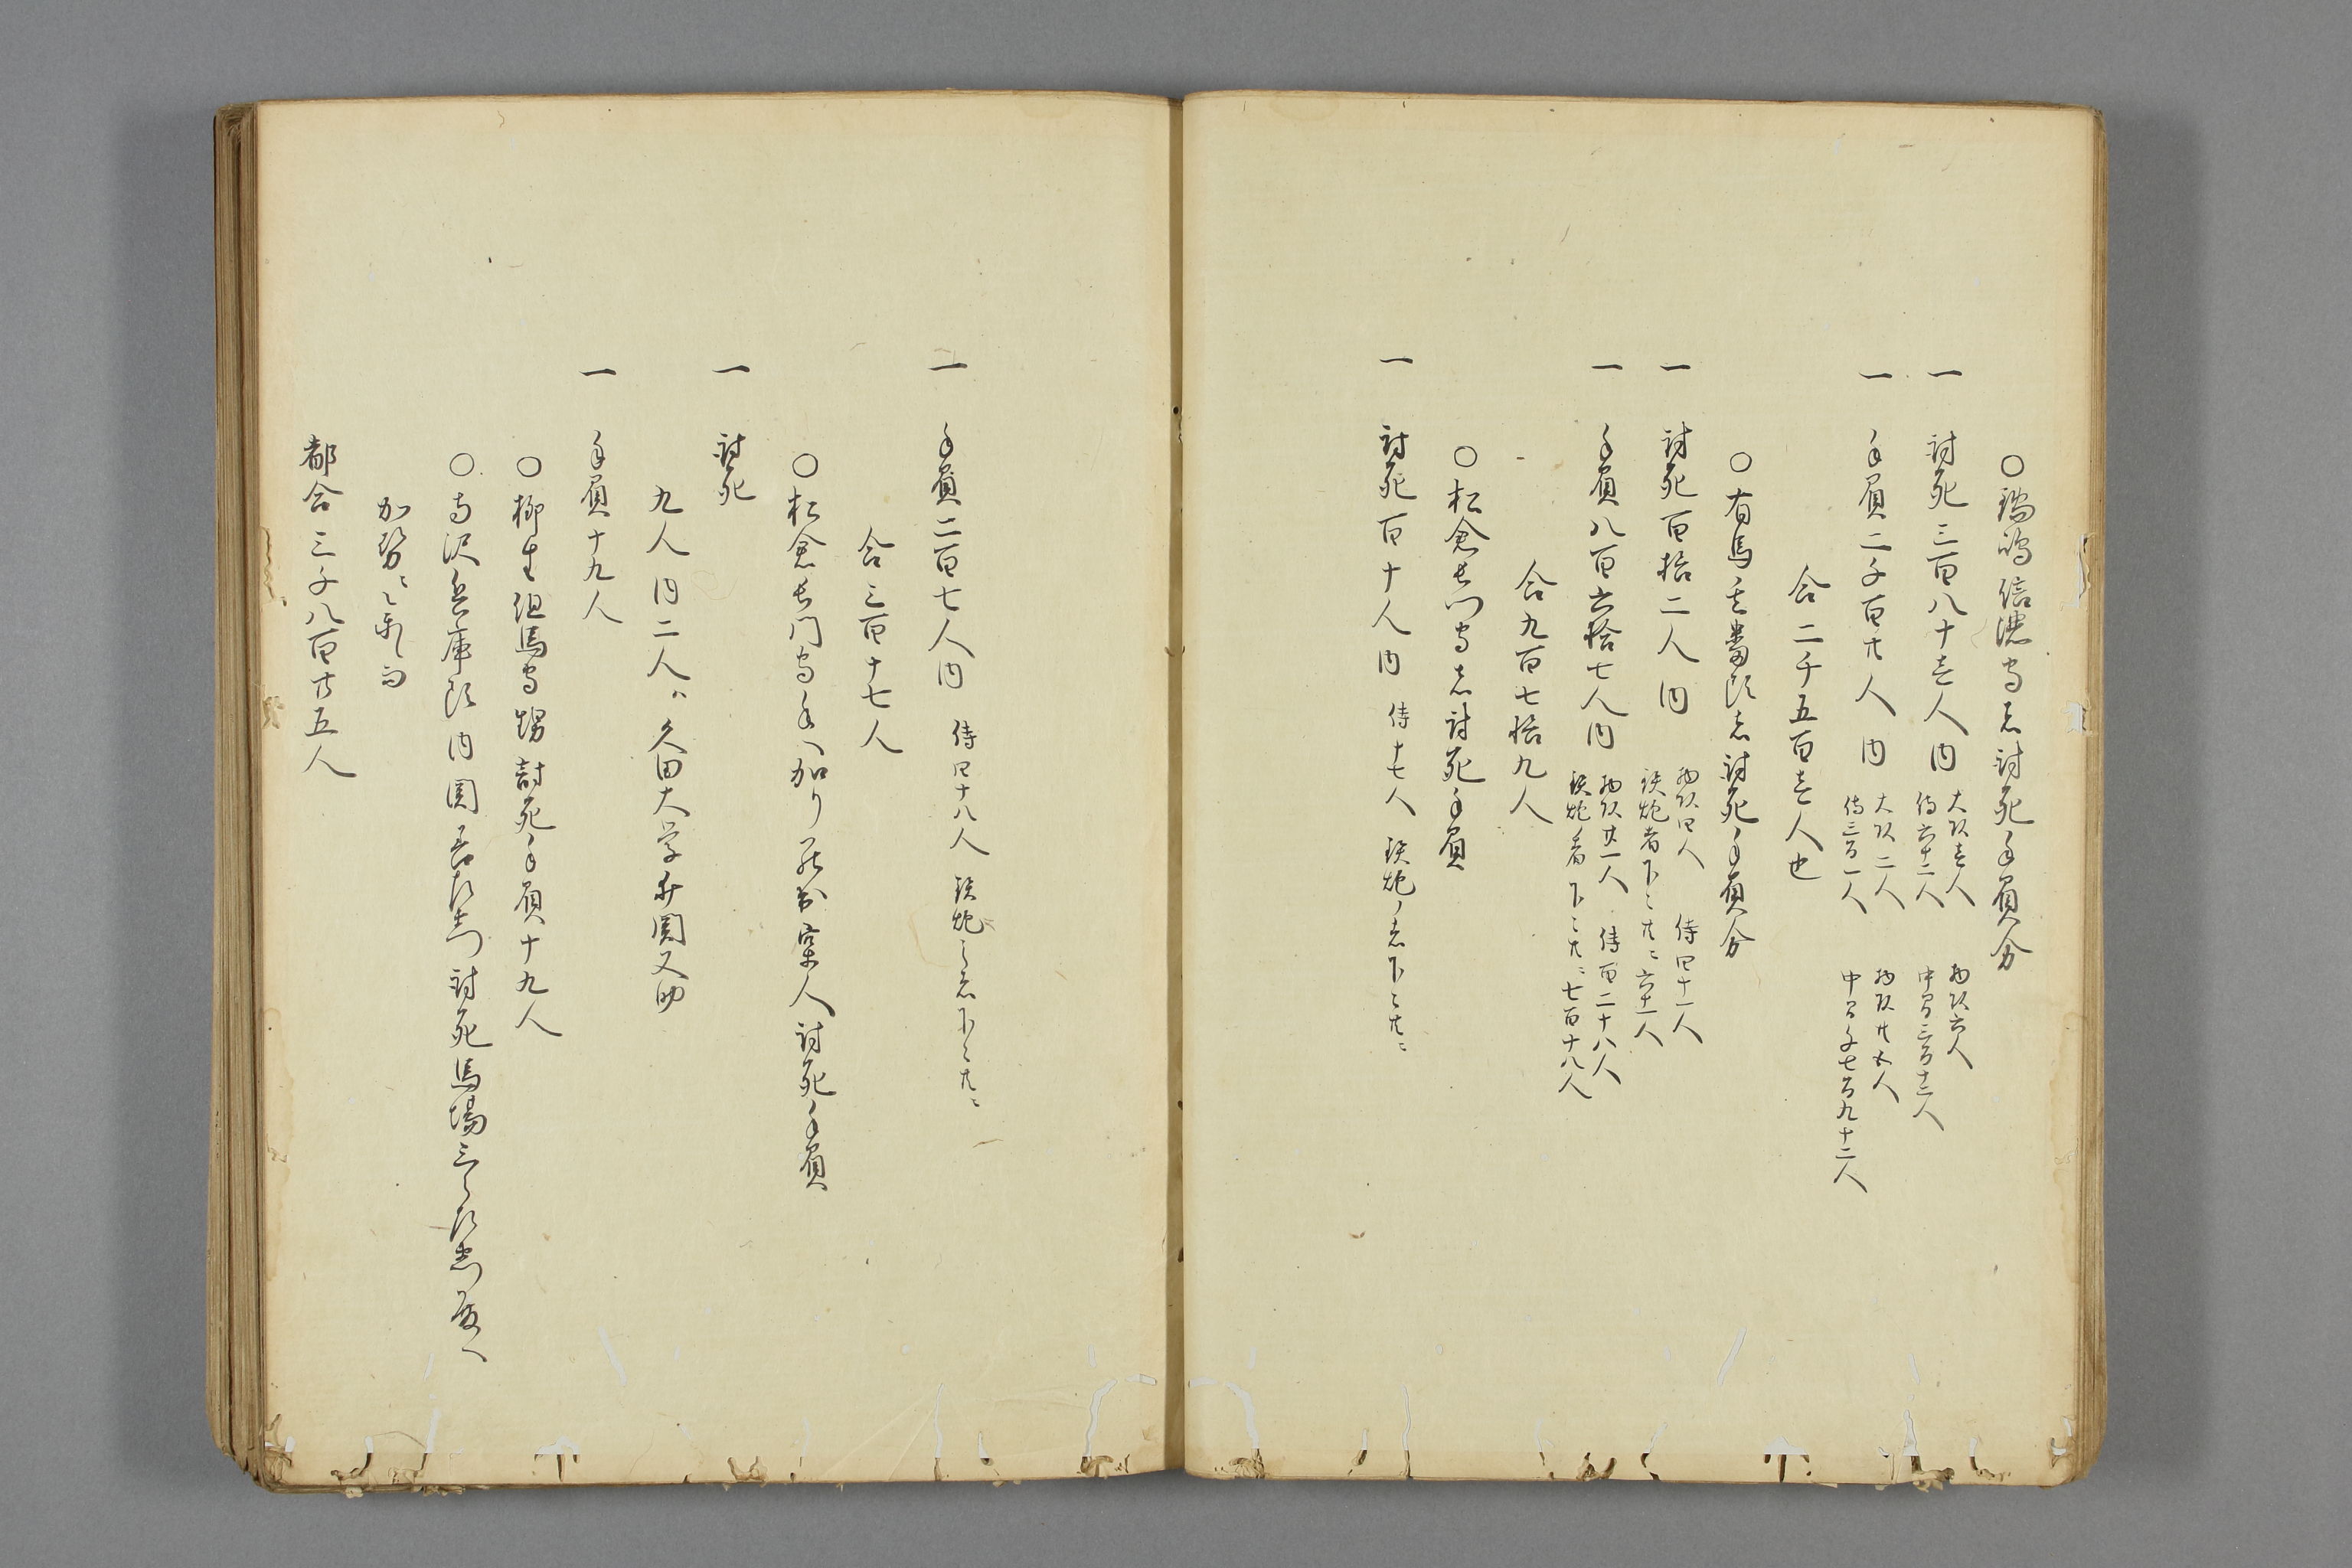 ○鍋嶋信濃守者討死手負分
一 討死三百八十壱人内 大頭壱人 物頭六人
侍六十二人 中間三百十二人
一 手負二千百廿人内 大頭二人 物頭廿五人
侍三百一人 中間千七百九十二人
合二千五百壱人也
○有馬玄蕃頭者討死手負分
一 討死百拾二人内 物頭四人 侍四十一人
鉄炮者下々共ニ六十一人
一 手負八百六拾七人内 物頭廿一人 侍百二十八人
鉄炮ノ者下々共ニ七百十八人
合九百七拾九人
○松倉長門守者討死手負
一 討死百十人内 侍十七人 鉄炮ノ者下々共ニ
一 手負二百七人内 侍四十八人 鉄炮之者下々共ニ
合三百十七人
○松倉長門守手ヘ加リ罷出 牢人討死手負
一 討死
九人内二人ハ久田大学 関又助
一 手負十九人
○柳生但馬守甥討死手負十九人
○寺沢兵庫頭内関 討死馬場三郎左衛門殿ヘ
加勢ニ
都合三千八百廿五人